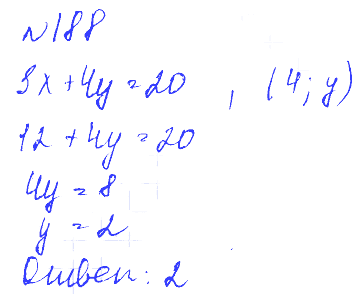 N188
3x+4y=20 , (4; y)
12+4y=20
4y=8
y=2
Ответ: 2